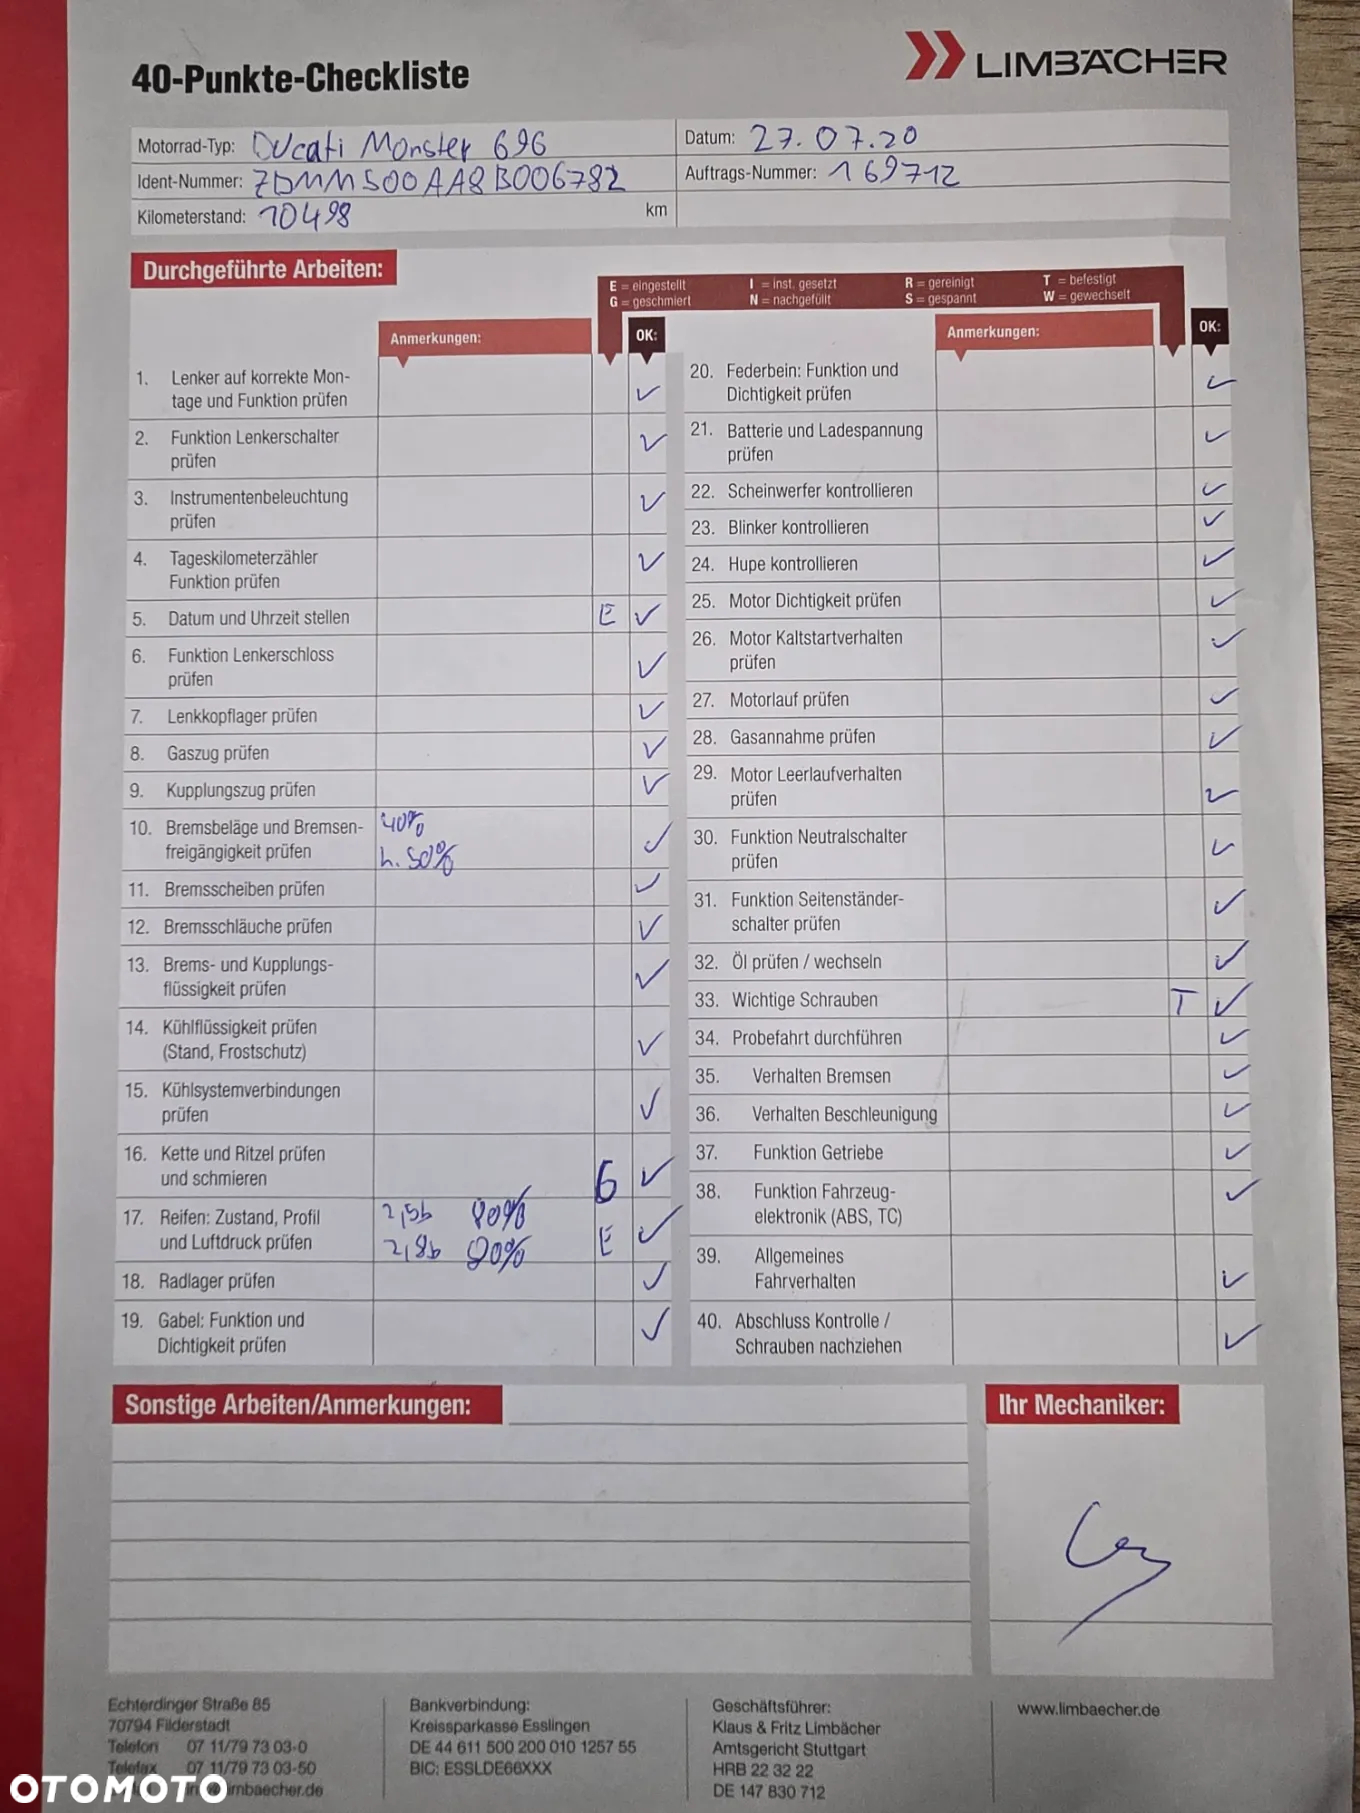 40-Punkte-Checkliste
LIMBÄCHER
Motorrad-Typ: Ducati Monster 696
Datum: 27.07.20
Ident-Nummer: ZDMM500AA8B006782
Auftrags-Nummer: 169712
Kilometerstand: 10498 km
Durchgeführte Arbeiten:
E = eingestellt I = inst. gesetzt R = gereinigt T = befestigt
G = geschmiert N = nachgefüllt S = gespannt W = gewechselt
Anmerkungen: OK:
1. Lenker auf korrekte Mon-
tage und Funktion prüfen ✓
2. Funktion Lenkerschalter
prüfen ✓
3. Instrumentenbeleuchtung
prüfen ✓
4. Tageskilometerzähler
Funktion prüfen ✓
5. Datum und Uhrzeit stellen E ✓
6. Funktion Lenkerschloss
prüfen ✓
7. Lenkkopflager prüfen ✓
8. Gaszug prüfen ✓
9. Kupplungszug prüfen ✓
10. Bremsbeläge und Bremsen- 40%
freigängigkeit prüfen h. 50% ✓
11. Bremsscheiben prüfen ✓
12. Bremsschläuche prüfen ✓
13. Brems- und Kupplungs-
flüssigkeit prüfen ✓
14. Kühlflüssigkeit prüfen
(Stand, Frostschutz) ✓
15. Kühlsystemverbindungen
prüfen ✓
16. Kette und Ritzel prüfen
und schmieren G ✓
17. Reifen: Zustand, Profil 2,5b 90%
und Luftdruck prüfen 2,8b 90% E ✓
18. Radlager prüfen ✓
19. Gabel: Funktion und
Dichtigkeit prüfen ✓
Anmerkungen: OK:
20. Federbein: Funktion und
Dichtigkeit prüfen ✓
21. Batterie und Ladespannung
prüfen ✓
22. Scheinwerfer kontrollieren ✓
23. Blinker kontrollieren ✓
24. Hupe kontrollieren ✓
25. Motor Dichtigkeit prüfen ✓
26. Motor Kaltstartverhalten
prüfen ✓
27. Motorlauf prüfen ✓
28. Gasannahme prüfen ✓
29. Motor Leerlaufverhalten
prüfen ✓
30. Funktion Neutralschalter
prüfen ✓
31. Funktion Seitenständer-
schalter prüfen ✓
32. Öl prüfen / wechseln ✓
33. Wichtige Schrauben T ✓
34. Probefahrt durchführen ✓
35. Verhalten Bremsen ✓
36. Verhalten Beschleunigung ✓
37. Funktion Getriebe ✓
38. Funktion Fahrzeug-
elektronik (ABS, TC) ✓
39. Allgemeines
Fahrverhalten ✓
40. Abschluss Kontrolle /
Schrauben nachziehen ✓
Sonstige Arbeiten/Anmerkungen:
Ihr Mechaniker:
Echterdinger Straße 85
70794 Filderstadt
Telefon 07 11/79 73 03-0
Telefax 07 11/79 73 03-50
Bankverbindung:
Kreissparkasse Esslingen
DE 44 611 500 200 010 1257 55
BIC: ESSLDE66XXX
Geschäftsführer:
Klaus & Fritz Limbächer
Amtsgericht Stuttgart
HRB 22 32 22
DE 147 830 712
www.limbaecher.de
OTOMOTO